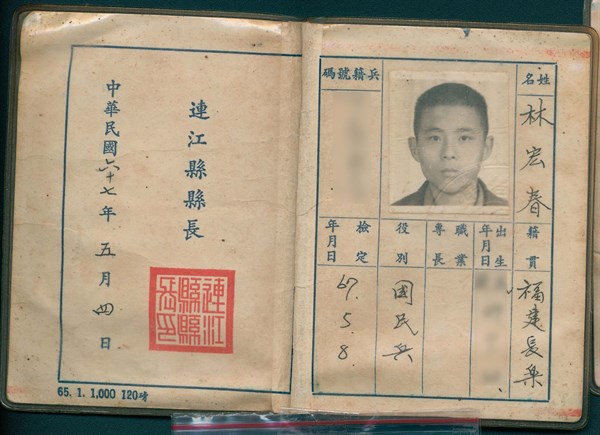 姓名
林宏春
籍貫
福建長樂
出生
年月日
職業
專長
兵籍號碼
役別
國民兵
檢定
年月日
67.
5.
8.
連江縣縣長
連江
縣縣
長印
中華民國六十七年五月四日
65. 1. 1,000 120磅